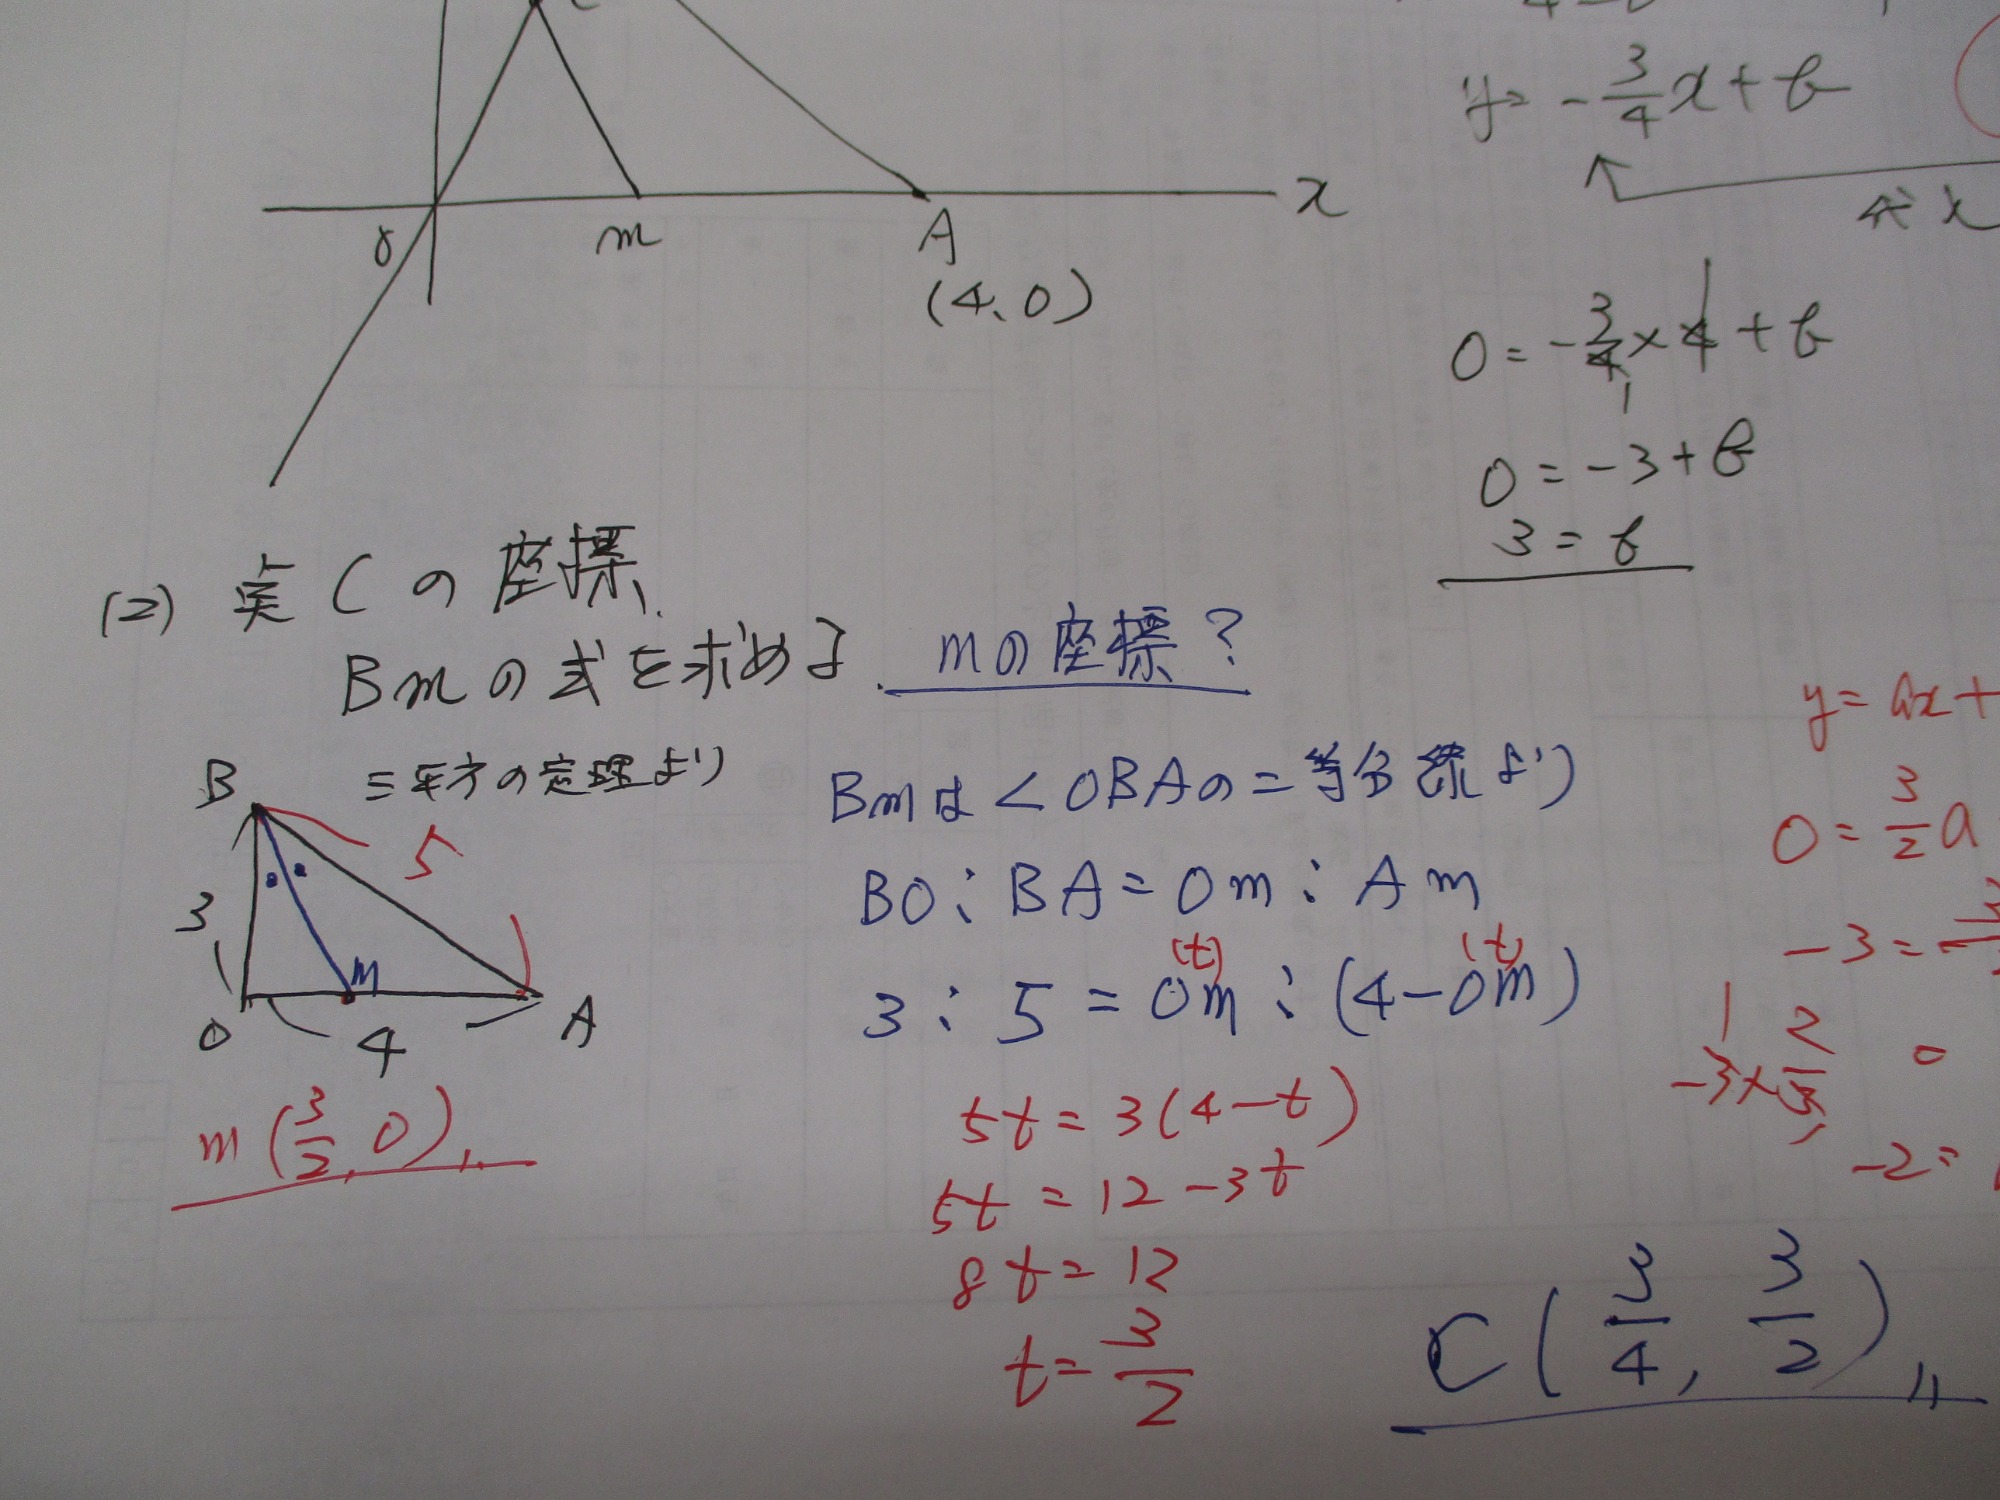 y = -3/4 x + b
x
O
m
A
(4、0)
0 = -3/4 × 4 + b
1
0 = -3 + b
3 = b
(2) 点Cの座標、
Bmの式を求めよ. mの座標?
B
三平方の定理より
5
3
m
O
4
A
m(3/2, 0)
Bmは∠OBAの二等分線より
BO : BA = Om : Am
(t) (t)
3 : 5 = Om : (4-Om)
5t = 3(4-t)
5t = 12 - 3t
8t = 12
t = 3/2
y = ax +
0 = 3/2 a
-3 =
-3 × 2/3
-2 =
C(3/4, 3/2)